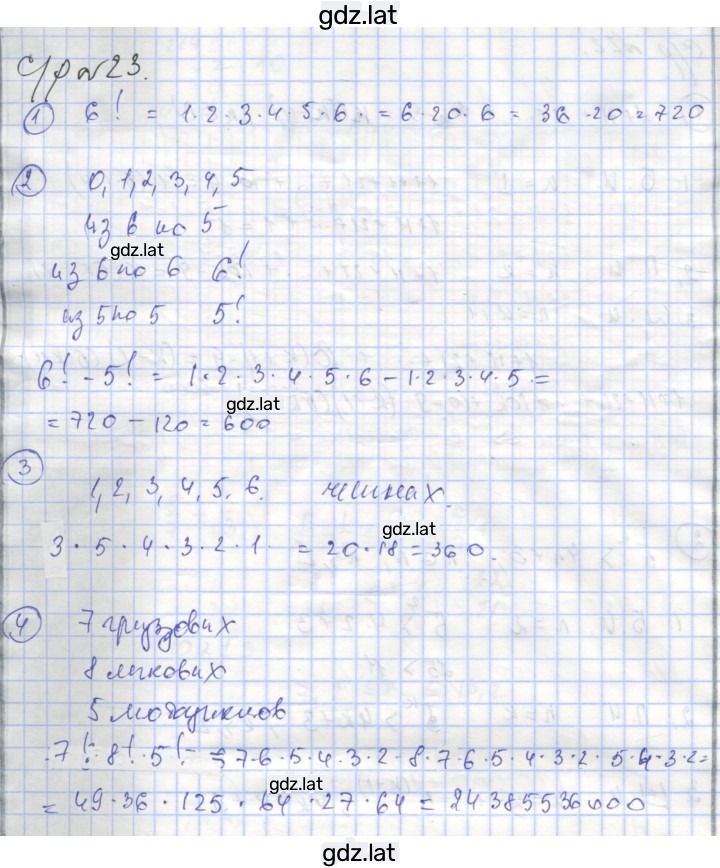 gdz.lat
С/р №23.
① 6! = 1·2·3·4·5·6· = 6·20·6 = 36·20 = 720
② 0, 1, 2, 3, 4, 5
из 6 по 5
gdz.lat
из 6 по 6 6!
из 5 по 5 5!
6! - 5! = 1·2·3·4·5·6 - 1·2·3·4·5 =
gdz.lat
= 720 - 120 = 600
③
1, 2, 3, 4, 5, 6.
gdz.lat
3·5·4·3·2·1 = 20·18 = 360.
④ 7 грузових
8 легкових
5 мотоциклов
7!·8!·5! = 7·6·5·4·3·2·8·7·6·5·4·3·2·5·4·3·2=
gdz.lat
= 49·36·125·64·27·64 = 24385536000
gdz.lat